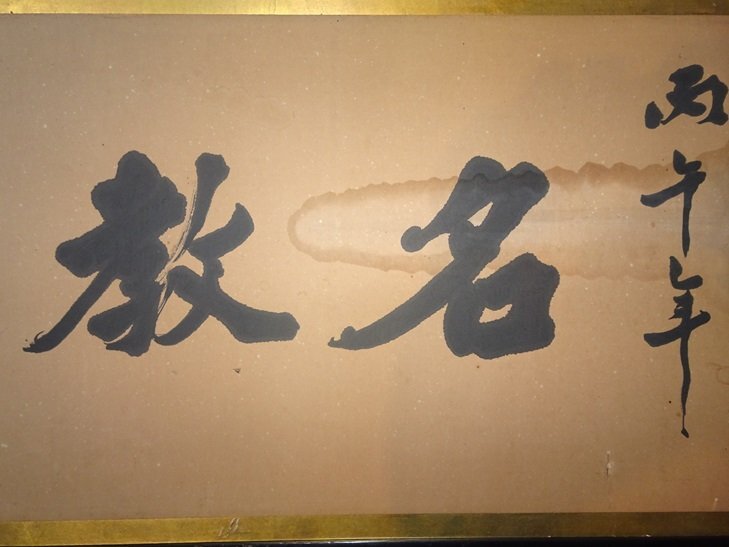 丙午年
名教